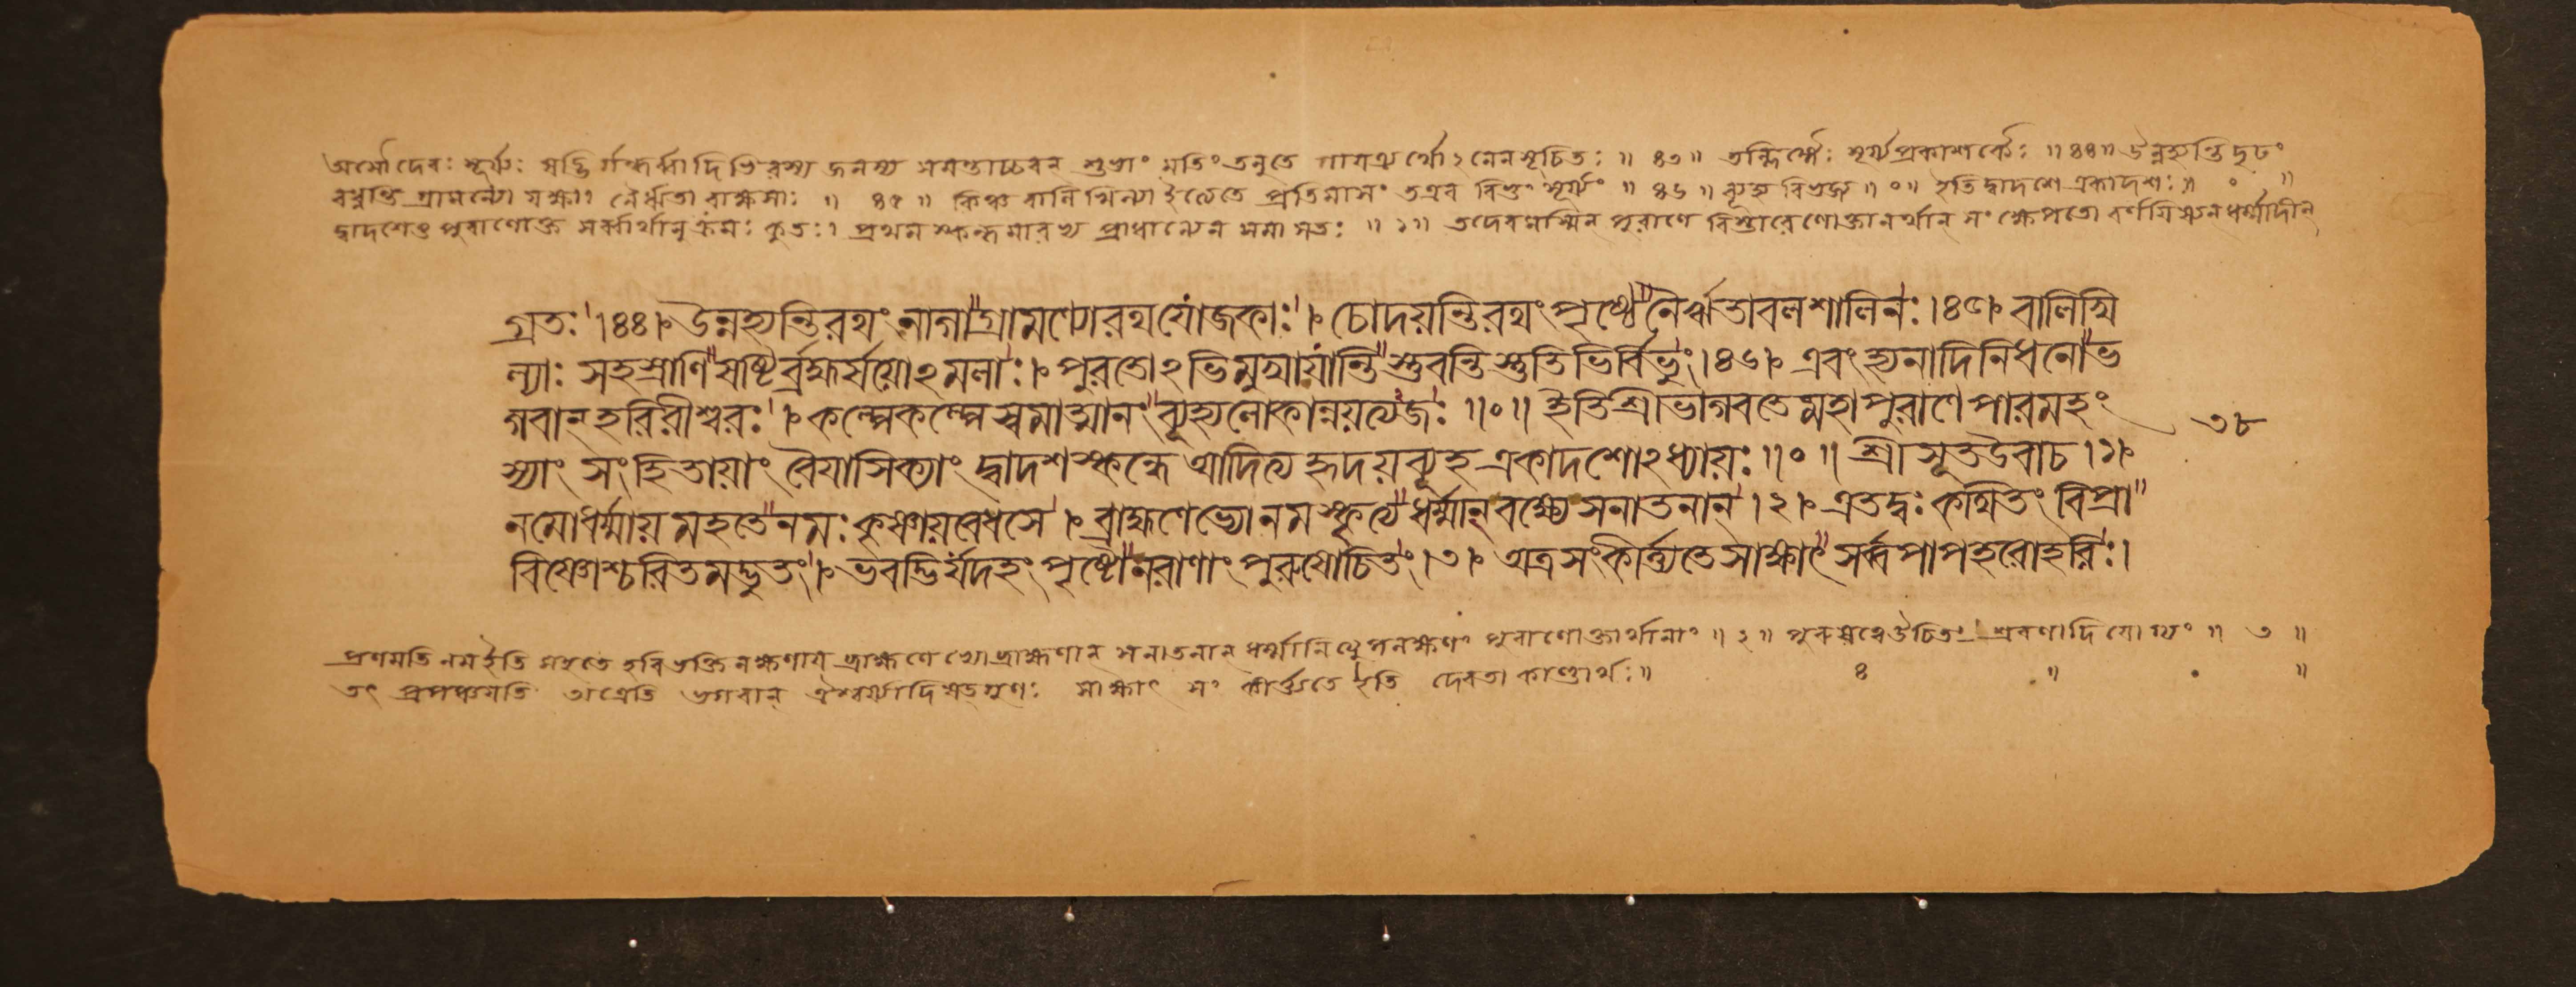 অসৌ দেবঃ সূর্য্যঃ সপ্তভির্গন্ধর্ব্বাদিভিরস্য জনস্য সমন্তাচ্চরন্ শুভাং মতিং তনুতে গায়ত্র্যর্থোঽনেন সূচিতঃ ॥ ৪৩ ॥ সূর্য্যপ্রকাশকৈঃ ॥ ৪৪ ॥ উন্নহ্যন্তি দৃঢং
বধ্নন্তি গ্রামণ্যো যক্ষাঃ নৈর্ঋতা রাক্ষসাঃ ॥ ৪৫ ॥ কিঞ্চ বালিখিল্যা ইত্যেতে প্রতিমাসং তএব বিভুং সূর্য্যং ॥ ৪৬ ॥ ব্যূহ্য বিভজ্য ॥ ০ ॥ ইতি দ্বাদশে একাদশঃ ॥ ০ ॥
দ্বাদশেতু পুরাণোক্ত সর্ব্বার্থানুক্রমঃ কৃতঃ। প্রথমস্কন্ধমারভ্য প্রাধান্যেন সমাসতঃ ॥ ১ ॥ তদেবমস্মিন্ পুরাণে বিস্তারেণোক্তানর্থান্ সংক্ষেপতো ধর্ম্মাদীন্
গ্রতঃ । ৪৪ । উন্নহ্যন্তিরথংনাগা গ্রামণ্যোরথযোজকাঃ । চোদয়ন্তিরথংপৃষ্ঠে নৈর্ঋতাবলশালিনঃ । ৪৫ । বালিখি
ল্যাঃ সহস্রাণি ষষ্টির্ব্রহ্মর্ষয়োঽমলাঃ । পুরতোঽভিমুখাযান্তি স্তুবন্তিস্তুতিভির্বিভুং । ৪৬ । এবংহ্যনাদিনিধনো ভ
গবান্হরিরীশ্বরঃ । কল্পেকল্পেস্বমাত্মানং ব্যূহ্যলোকান্নয়ত্যজঃ ॥ ০ ॥ ইতিশ্রীভাগবতেমহাপুরাণেপারমহং
৩৮
স্যাং সংহিতায়াং বৈয়াসিক্যাং দ্বাদশস্কন্ধে আদিত্যহৃদয়ব্যূহ একাদশোঽধ্যায়ঃ ॥ ০ ॥ শ্রীসূতউবাচ । ১ ।
নমোধর্ম্মায়মহতে নমঃকৃষ্ণায়বেধসে । ব্রাহ্মণেভ্যোনমস্কৃত্য ধর্ম্মান্বক্ষ্যেসনাতনান্ । ২ । এতদ্বঃকথিতংবিপ্রা
বিষ্ণোশ্চরিতমদ্ভুতং । ভবদ্ভির্যদহংপৃষ্টো নরাণাংপুরুষোচিতং । ৩ । অত্রসংকীর্ত্ত্যতেসাক্ষাৎ সর্ব্বপাপহরোহরিঃ ।
প্রণমতি নমইতি মহতে হরিভক্তিলক্ষণায় ব্রাহ্মণেভ্যো ব্রাহ্মণান্ সনাতনান্ ধর্ম্মানিত্যুপলক্ষণং পুরাণোক্তার্থানাং ॥ ২ ॥ পুরুষত্বেউচিতং শ্রবণাদিযোগ্যং ॥ ৩ ॥
তৎ প্রপঞ্চয়তি অত্রেতি ভগবান্ ঐশ্বর্য্যাদিষড্গুণঃ সাক্ষাৎ সংকীর্ত্ত্যতে ইতি দেবতাকাণ্ডার্থঃ ॥ ৪ ॥ ০ ॥